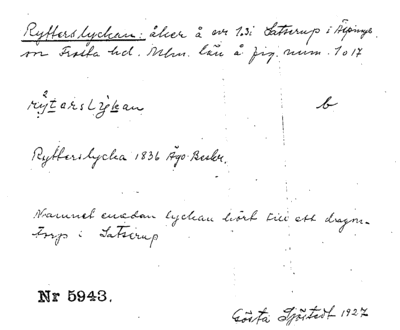 Rytterslyckan: åker å nr 1.3 i Satserup i Äspinge
sn Frosta hd. Mlm. län å fig. num. 1017
b
Rytterslycka 1836 Ägo Beskr.
Namnet emedan lyckan hört till ett dragon-
torp i Satserup
Nr 5943.
Gösta Sjöstedt 1927